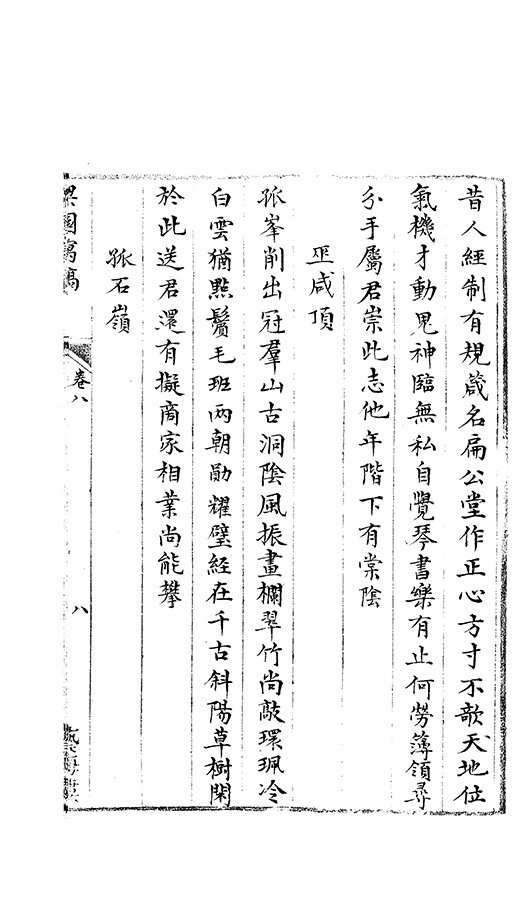 昔人經制有規箴名扁公堂作正心方寸不欹天地位
氣機才動鬼神臨無私自覺琴書樂有止何勞簿領尋
分手屬君崇此志他年階下有棠陰
巫咸頂
孤峯削出冠羣山古洞陰風振畫欄翠竹尚敲環珮冷
白雲猶點鬢毛班兩朝勛耀壁經在千古斜陽草樹閑
於此送君還有擬商家相業尚能攀
孤石嶺
卷八
八